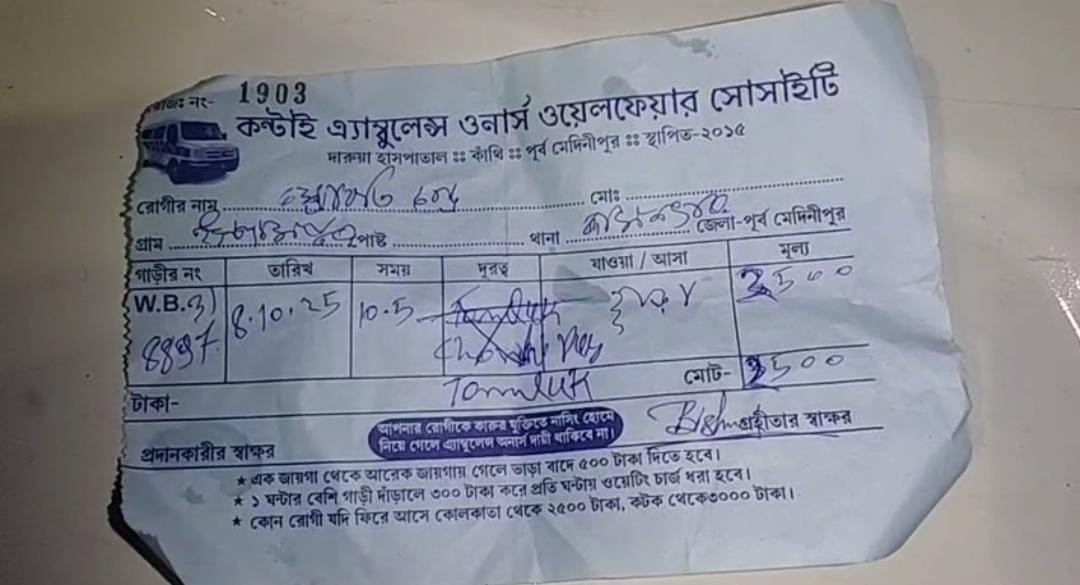 নং- 1903
কন্টাই এ্যাম্বুলেন্স ওনার্স ওয়েলফেয়ার সোসাইটি
দারুয়া হাসপাতাল ঃঃ কাঁথি ঃঃ পূর্ব মেদিনীপুর ঃঃ স্থাপিত-২০১৫
রোগীর নাম মোঃ
গ্রাম পোষ্ট থানা জেলা-পূর্ব মেদিনীপুর
গাড়ীর নং তারিখ সময় দূরত্ব যাওয়া / আসা মূল্য
W.B. 8.10.25 10.5 500
Tamluk
মোট- 500
টাকা-
আপনার রোগীকে কারুর যুক্তিতে নার্সিং হোমে
নিয়ে গেলে এ্যাম্বুলেন্স অনার্স দায়ী থাকিবে না।
প্রদানকারীর স্বাক্ষর গ্রহীতার স্বাক্ষর
★ এক জায়গা থেকে আরেক জায়গায় গেলে ভাড়া বাদে ৫০০ টাকা দিতে হবে।
★ ১ ঘন্টার বেশি গাড়ী দাঁড়ালে ৩০০ টাকা করে প্রতি ঘন্টায় ওয়েটিং চার্জ ধরা হবে।
★ কোন রোগী যদি ফিরে আসে কোলকাতা থেকে ২৫০০ টাকা, কটক থেকে৩০০০ টাকা।